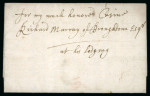 for my much honored Cosine
Richard Murray of Broughtone Esqr
at his lodging